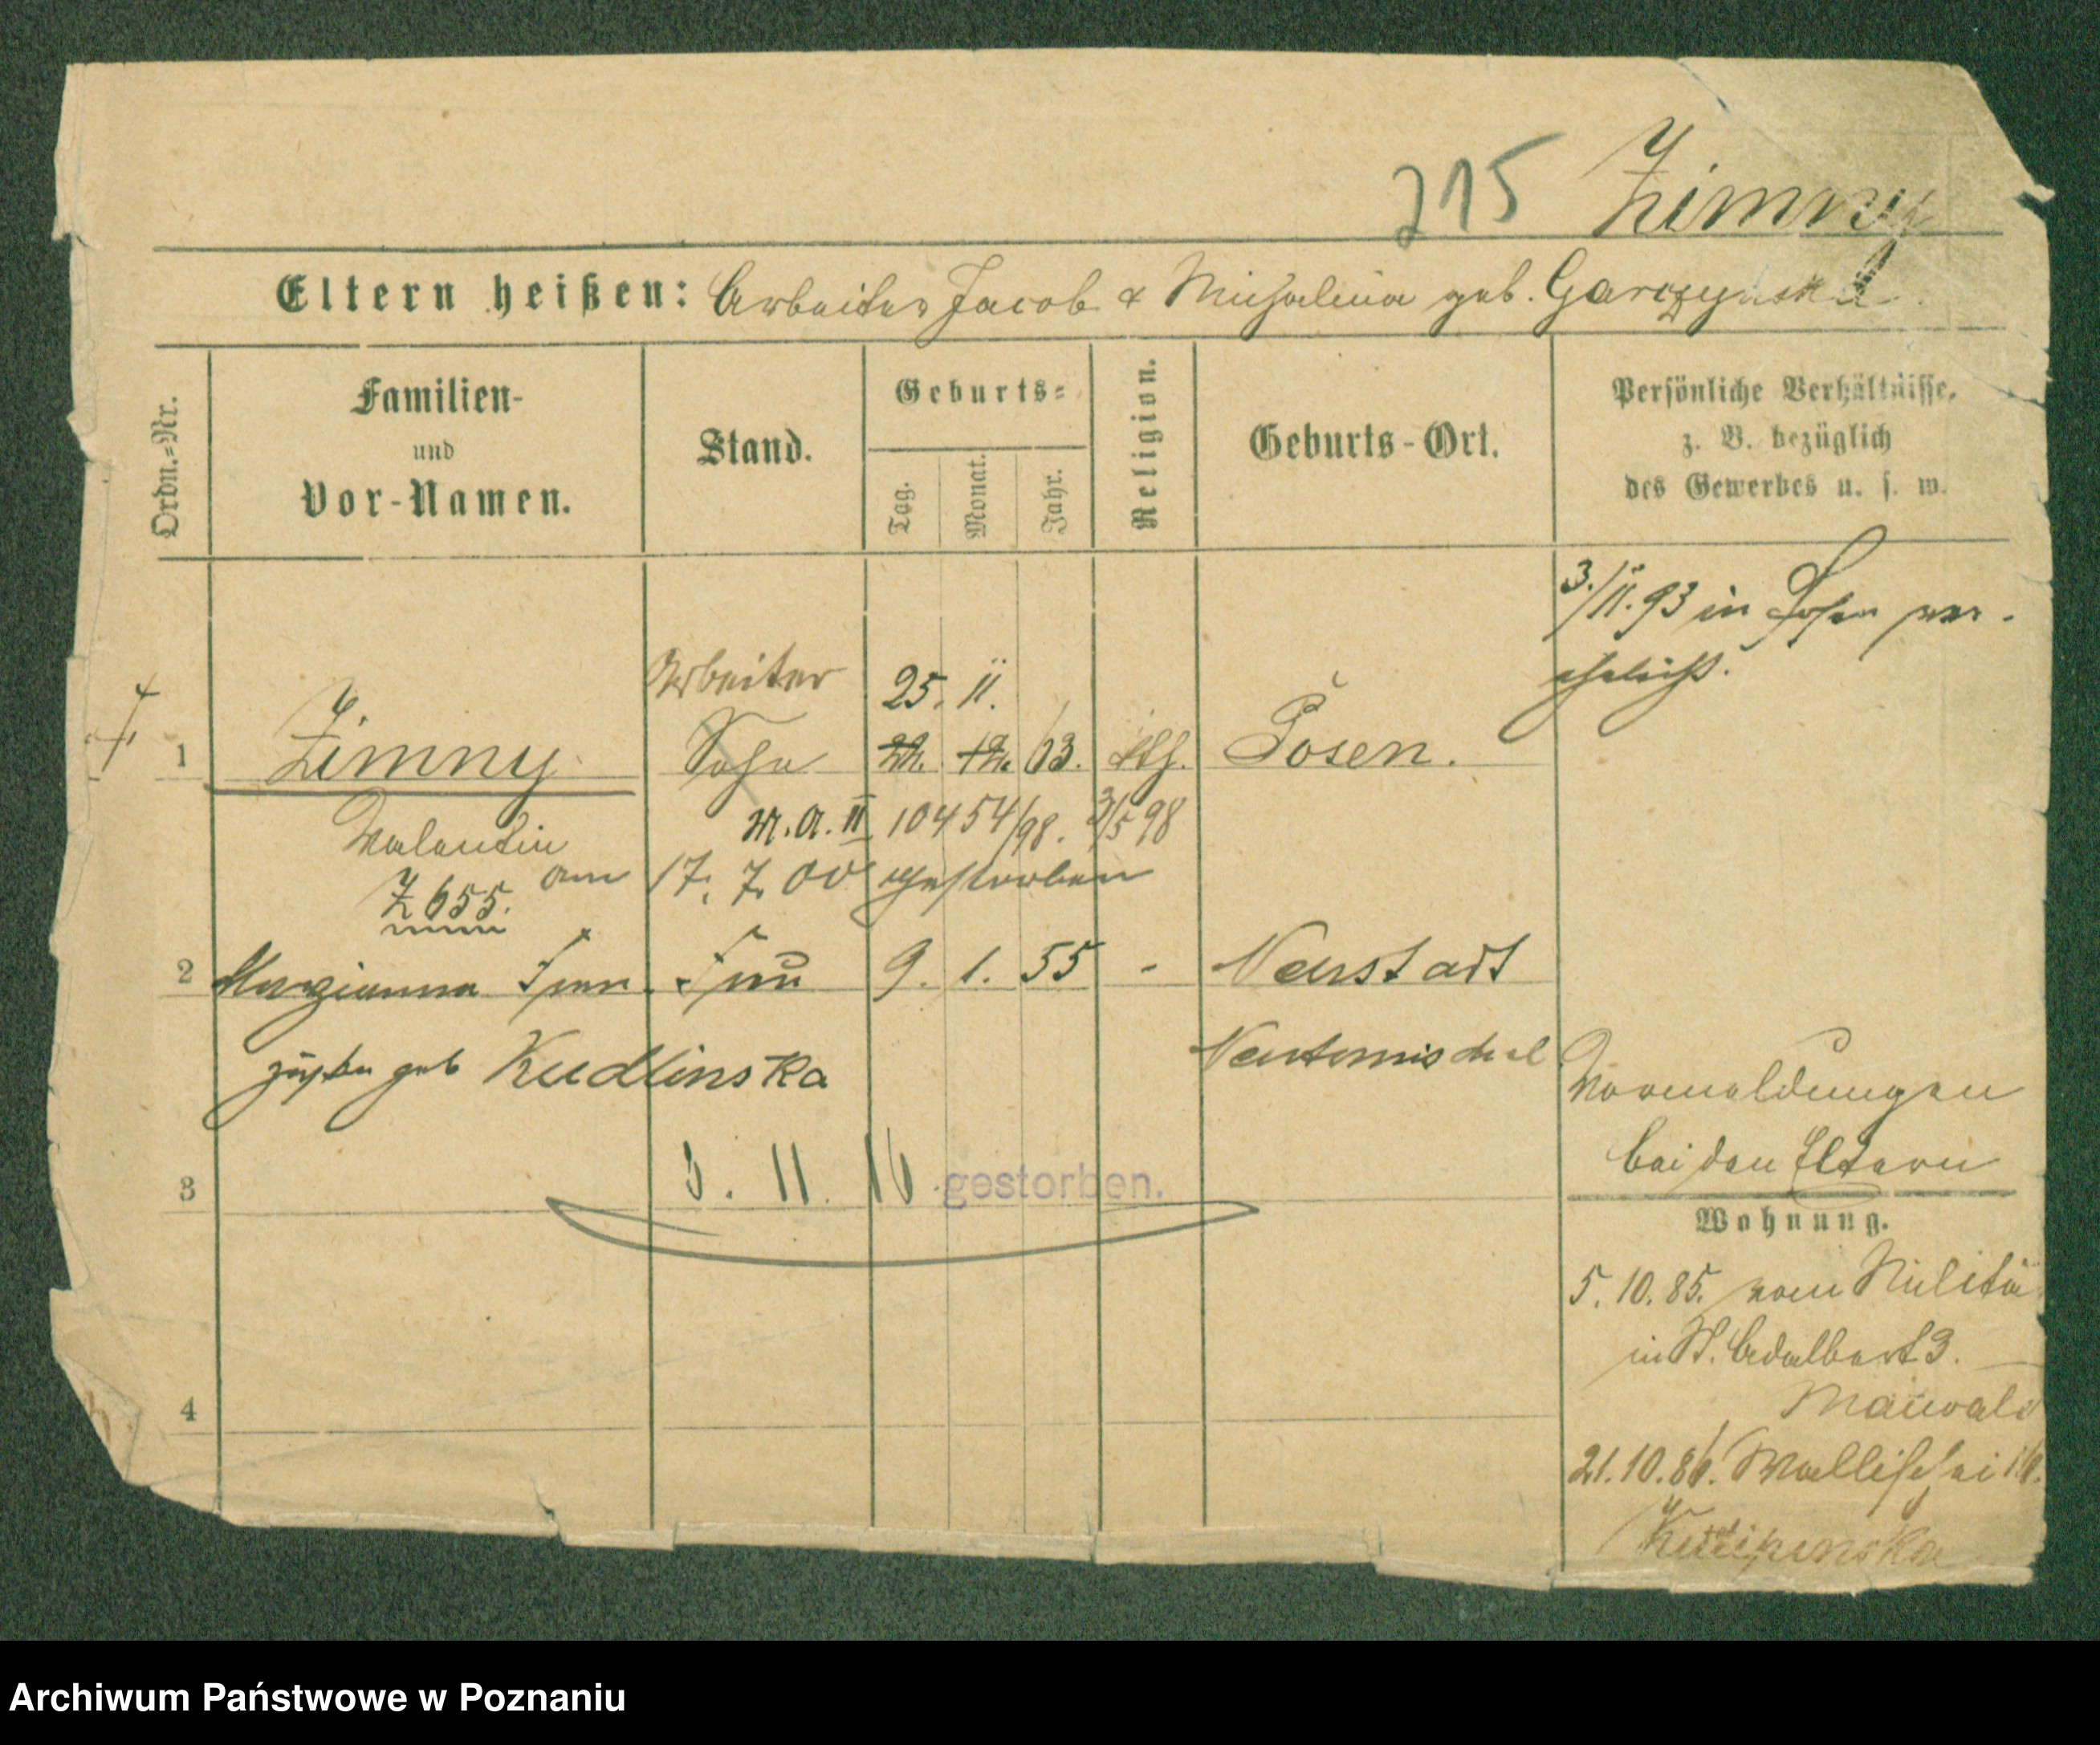 215 Zimny
Eltern heißen: Arbeiter Jacob & Michalina geb. Garczynska
Ordn.=Nr.
Familien-
und
Vor-Namen.
Stand.
Geburts=
Tag.
Monat.
Jahr.
Religion.
Geburts-Ort.
Persönliche Verhältnisse,
z. B. bezüglich
des Gewerbes u. s. w.
3./11. 93 in Posen ver-
ehelicht.
Arbeiter 25. 11.
1 Zimny Sohn 12. 63. kth. Posen.
M.A. II 10454/98. 3/5 98
Valentin
am 17. 7. 00 gestorben
Z 655.
2 Marzianna Fran- Frau 9. 1. 55 - Neustadt
ziska geb Kudlinska
Neutomischel
Vormeldungen
bei den Eltern
3 3. 11. 16 gestorben.
Wohnung.
5. 10. 85. vom Militär
in St. Adalbert 3.
Maiwald
4
21. 10. 86. Wallischei
Archiwum Państwowe w Poznaniu